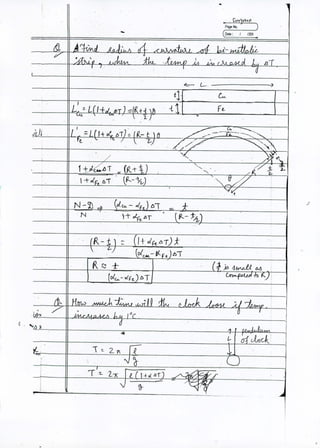 Camptone
Page No.
Date: / /20
Q. Find radius of curvature of bi-metallic
strip, when the temp is increased by ΔT
← L →
t Cu
t Fe
L'Cu = L(1+αCuΔT) = (R+t/2)θ
L'Fe = L(1+αFeΔT) = (R-t/2)θ
Cu
Fe
θ
t/2
t/2
1+αCuΔT / 1+αFeΔT = (R+t/2) / (R-t/2)
N-D / N ⇒ (αCu - αFe)ΔT / 1+αFeΔT = t / (R-t/2)
(R-t/2) = (1+αFeΔT)t / (αCu-αFe)ΔT
R ≈ t / (αCu-αFe)ΔT
(t is small as
compared to R)
Q. How much time will the clock loose if temp.
increases by 1°C
L pendulum
of clock
T = 2π √(l/g)
T' = 2π √(l(1+αΔT)/g)